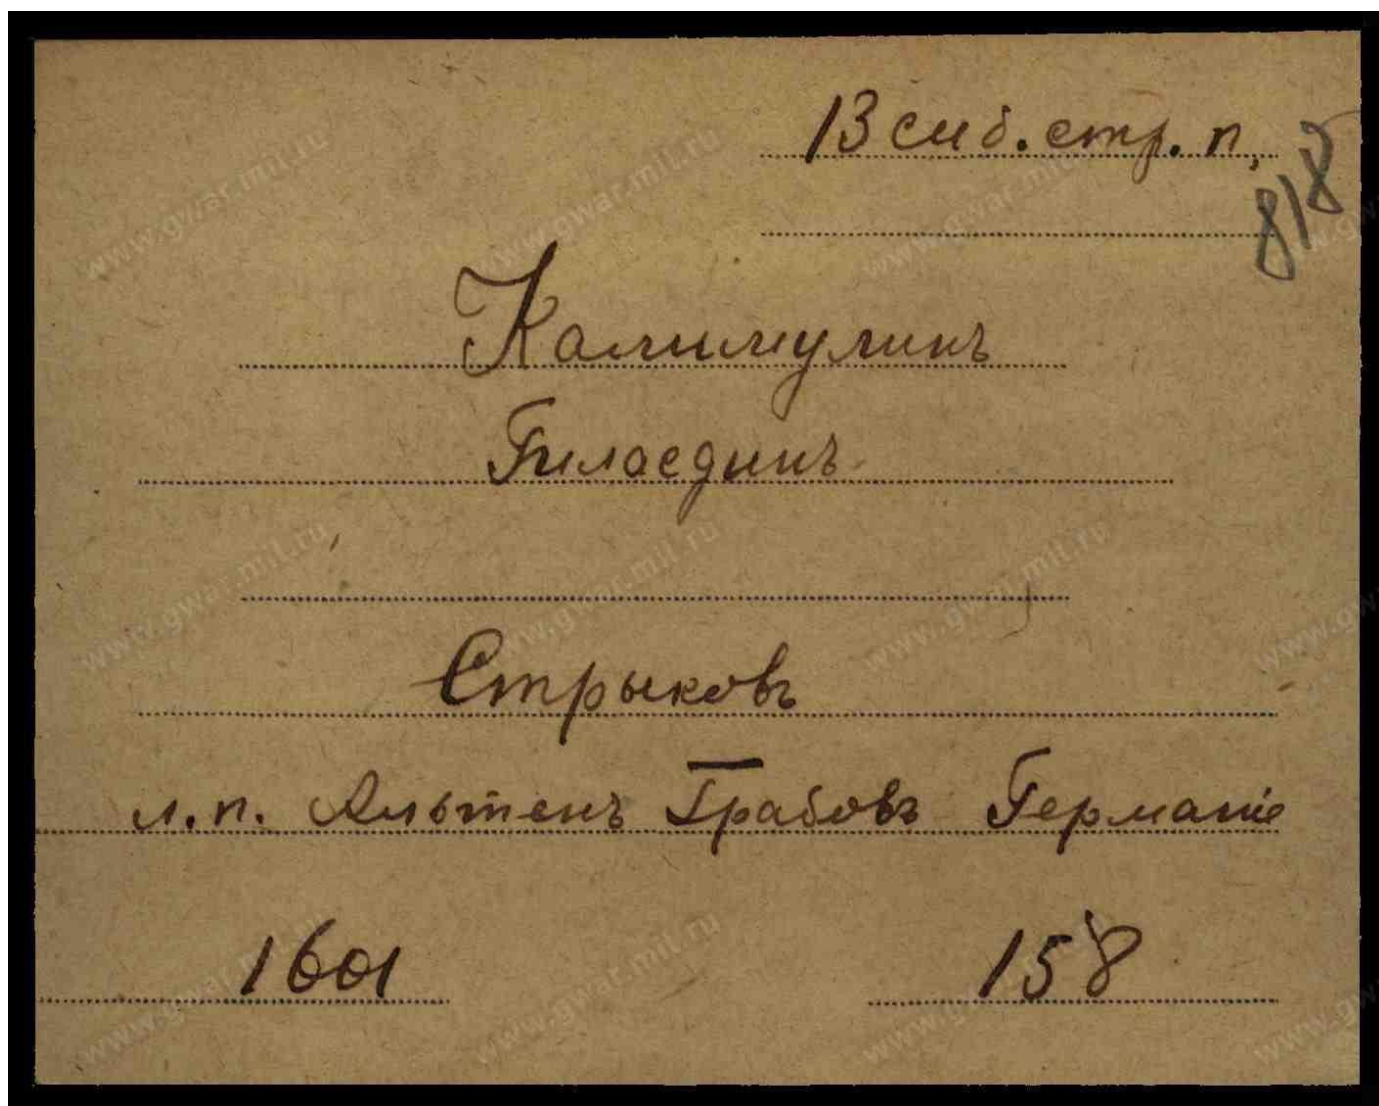 13 сиб. стр. п,
818
Калимулинъ
Гиласдинъ
Стрыковъ
л.п. Альтенъ Грабовъ Германіе
1601
158
www.gwar.mil.ru